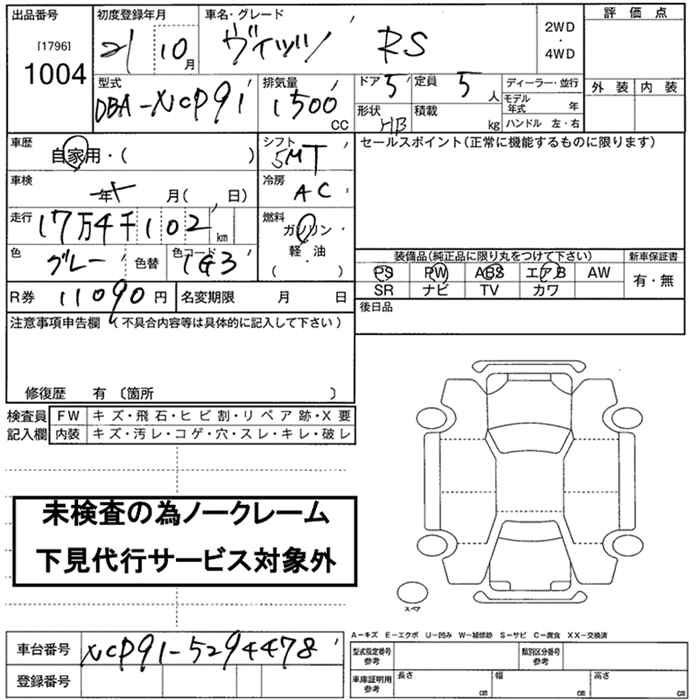 出品番号 初度登録年月 車名・グレード 評価点
[1796] 21 10月 ヴィッツ RS 2WD・4WD
1004 外装 内装
型式 排気量 ドア 5 定員 5人 ディーラー・並行
DBA-NCP91 1500CC 形状 HB 積載 kg モデル年式 年
ハンドル 左・右
車歴 自家用・( ) シフト 5MT セールスポイント(正常に機能するものに限ります)
車検 年 月( 日) 冷房 AC
走行 17万4千102km 燃料 ガソリン・軽・油( )
色 グレー 色替 色コード 1G3 装備品(純正品に限り丸をつけて下さい) 新車保証書
PS PW ABS エアB AW 有・無
R券 11090円 名変期限 月 日 SR ナビ TV カワ
注意事項申告欄(不具合内容等は具体的に記入して下さい) 後日品
修復歴 有〔箇所 〕
検査員 FW キズ・飛石・ヒビ割・リペア跡・X要
記入欄 内装 キズ・汚レ・コゲ・穴・スレ・キレ・破レ
未検査の為ノークレーム
下見代行サービス対象外
スペア
A-キズ E-エクボ U-凹み W-補修跡 S-サビ C-腐食 XX-交換済
車台番号 NCP91-5294478 型式指定番号 参考 類別区分番号 参考
登録番号 車庫証明用 参考 長さ cm 幅 cm 高さ cm